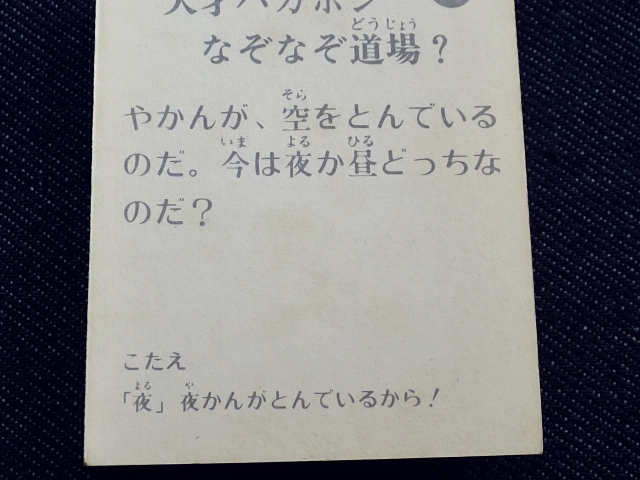 天才バカボン
なぞなぞ道場?
やかんが、空をとんでいる
のだ。今は夜か昼どっちな
のだ?
こたえ
「夜」夜かんがとんでいるから!